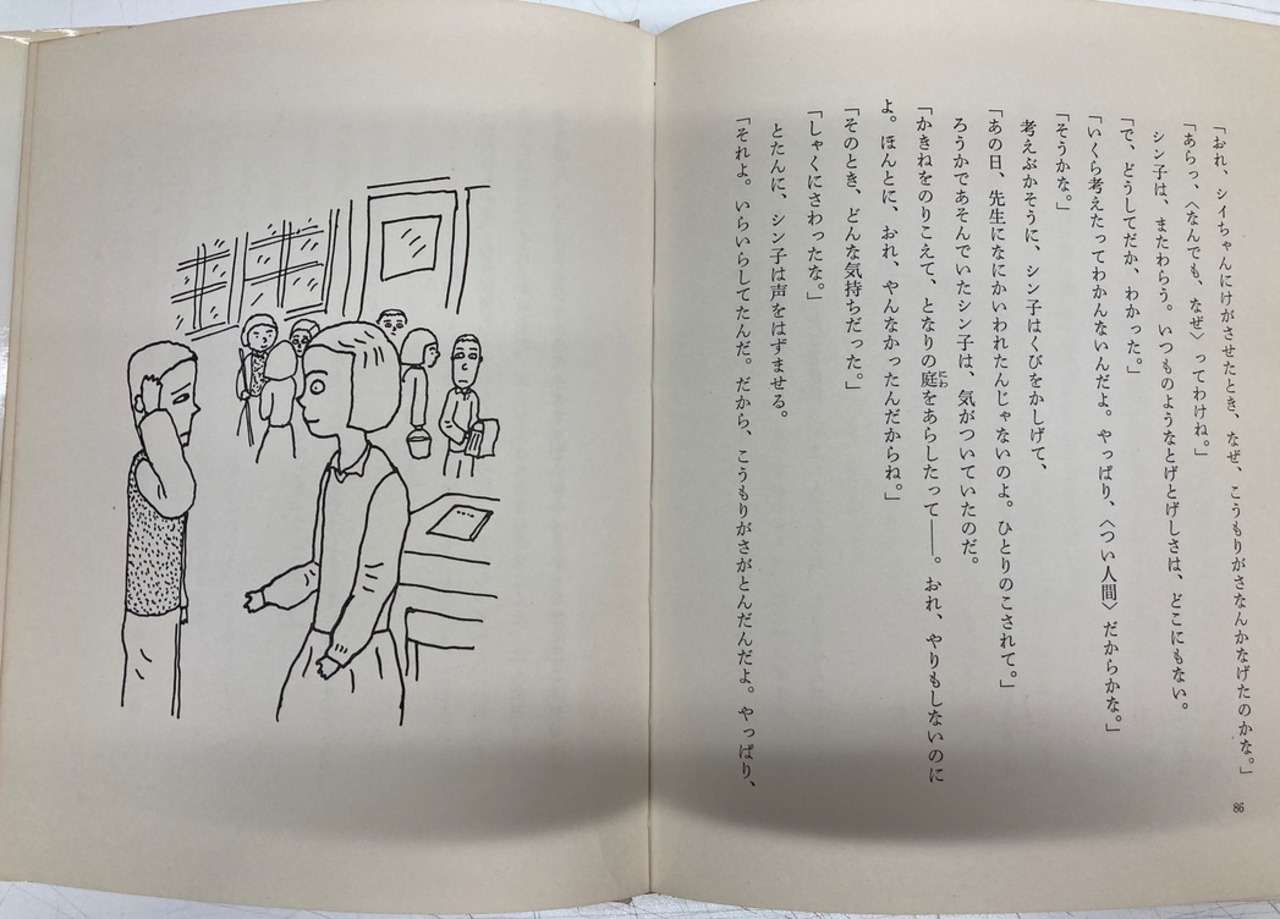 「おれ、シイちゃんにけがさせたとき、なぜ、こうもりがさなんかなげたのかな。」
「あらっ、〈なんでも、なぜ〉ってわけね。」
シン子は、またわらう。いつものようなとげとげしさは、どこにもない。
「で、どうしてだか、わかった。」
「いくら考えたってわかんないんだよ。やっぱり、〈つい人間〉だからかな。」
「そうかな。」
考えぶかそうに、シン子はくびをかしげて、
「あの日、先生になにかいわれたんじゃないのよ。ひとりのこされて。」
ろうかであそんでいたシン子は、気がついていたのだ。
「かきねをのりこえて、となりの庭にわをあらしたって――。おれ、やりもしないのに
よ。ほんとに、おれ、やんなかったんだからね。」
「そのとき、どんな気持ちだった。」
「しゃくにさわったな。」
とたんに、シン子は声をはずませる。
「それよ。いらいらしてたんだ。だから、こうもりがさがとんだんだよ。やっぱり、
86